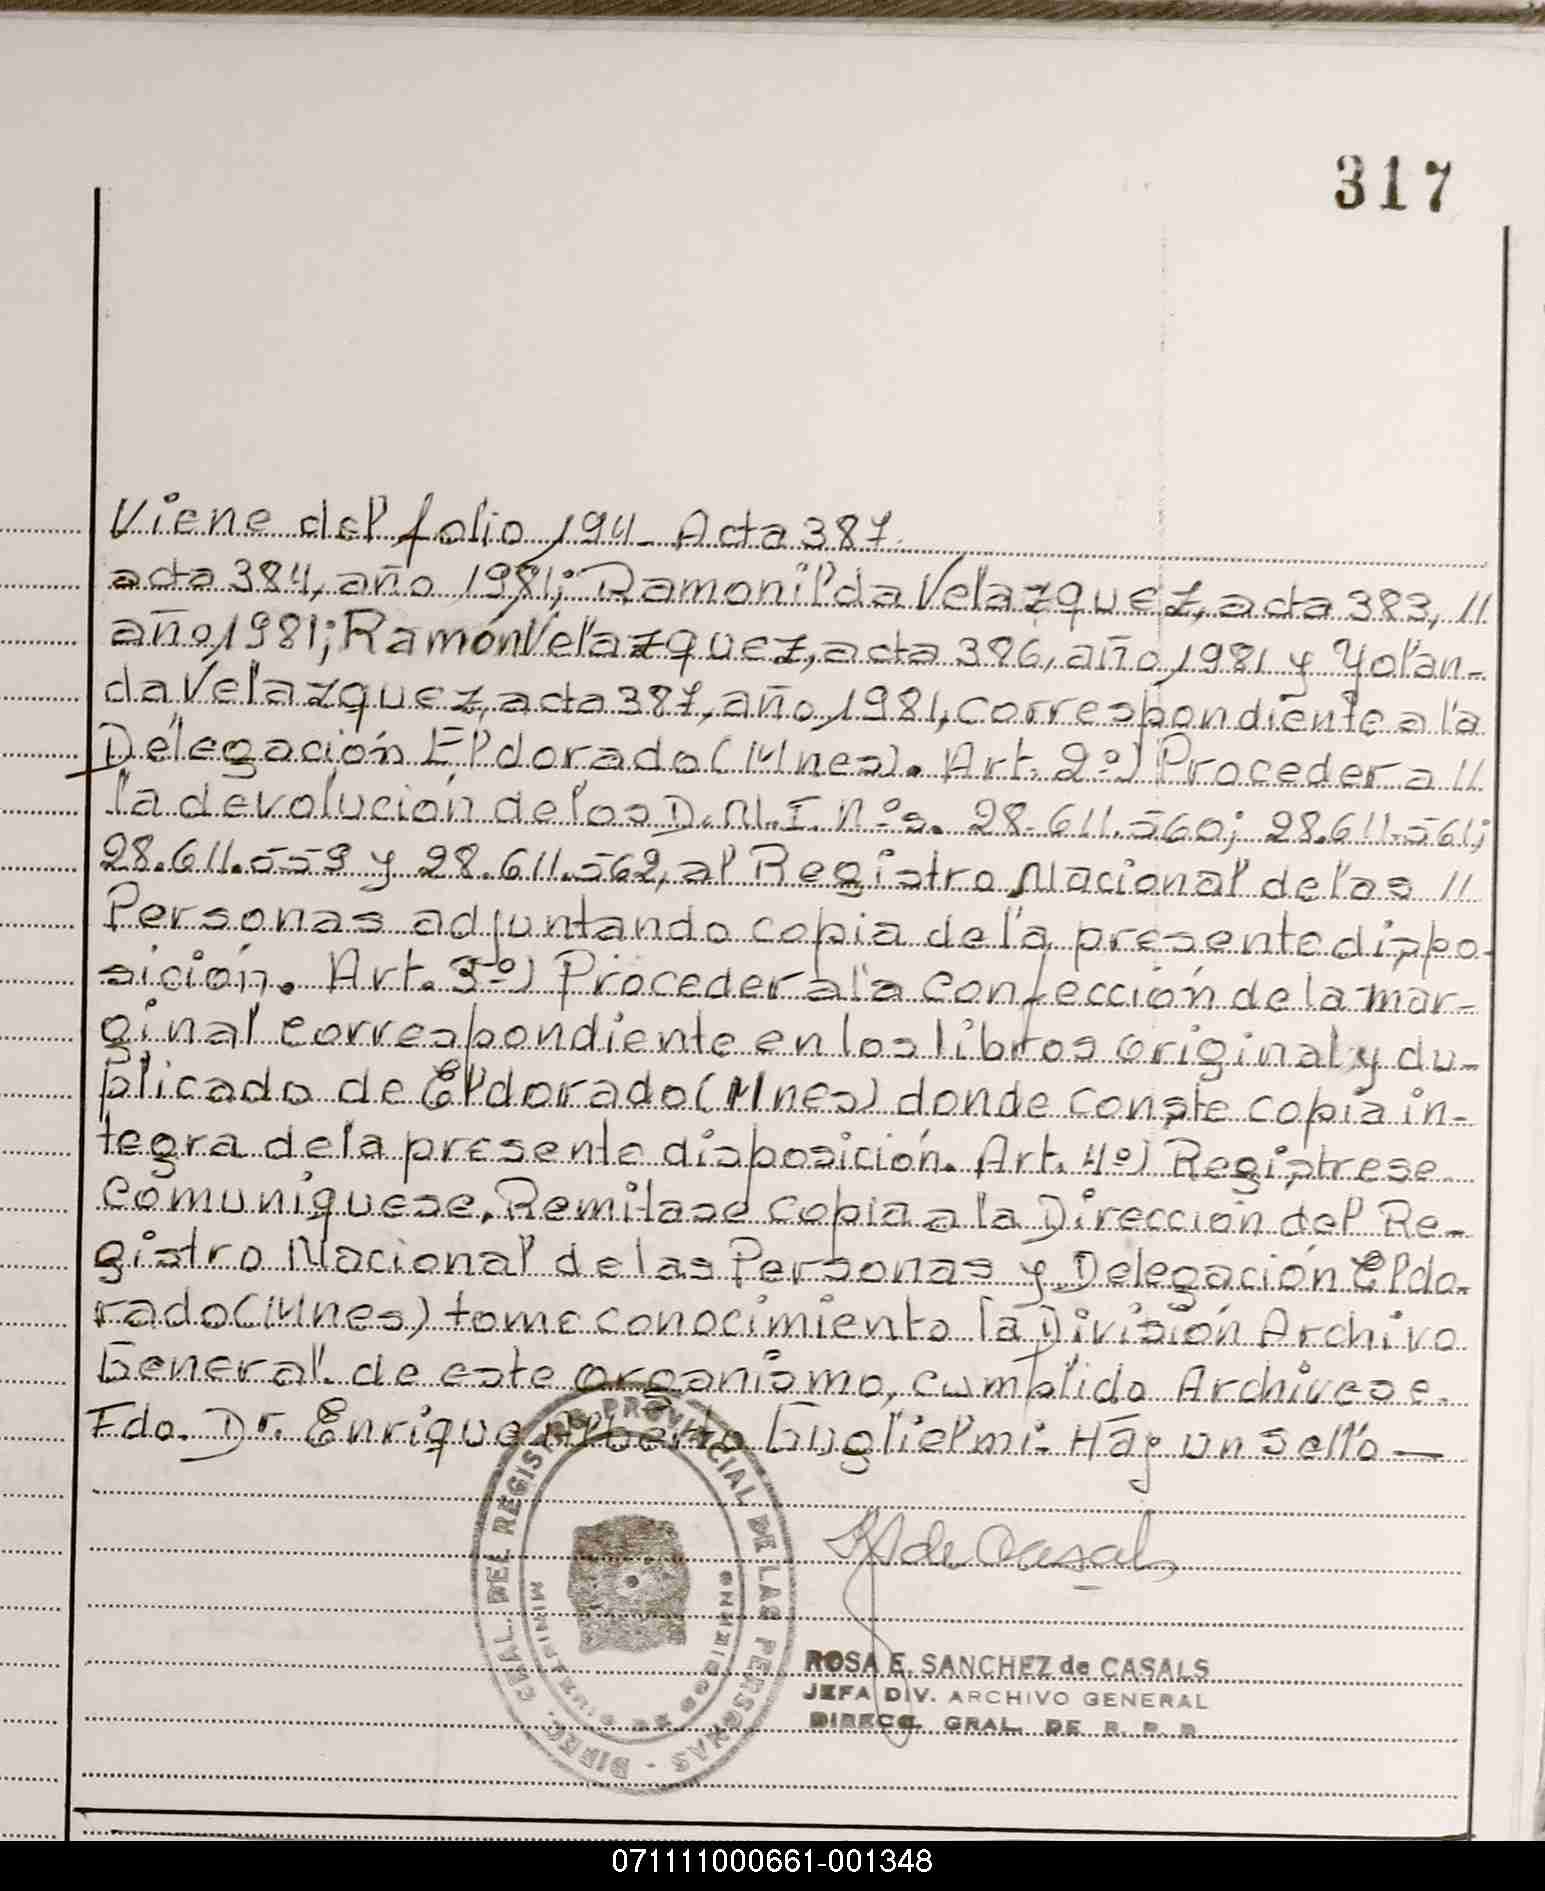 317
Viene del folio 194_ Acta 387.
acta 384, año 1981; Ramonilda Velazquez, acta 383, //
año 1981; Ramón Velazquez, acta 386, año 1981 y Yolan-
da Velazquez, acta 387, año 1981, correspondiente a la
Delegación Eldorado (Mnes). Art. 2º) Proceder a //
la devolución de los D.N.I. Nºs. 28.611.560; 28.611.561;
28.611.559 y 28.611.562, al Registro Nacional de las //
Personas adjuntando copia de la presente dispo-
sición. Art. 3º) Proceder a la confección de la mar-
ginal correspondiente en los libros original y du-
plicado de Eldorado (Mnes) donde conste copia in-
tegra de la presente disposición. Art. 4º) Registrese
Comuniquese, Remitase copia a la Dirección del Re-
gistro Nacional de las Personas y Delegación Eldo-
rado (Mnes) tome conocimiento la División Archivo
General de este organismo, cumplido Archivese.
Fdo. Dr. Enrique Alberto Guglielmi- Hay un sello —
DIREC. GRAL. DEL REGISTRO PROVINCIAL DE LAS PERSONAS
MINISTERIO DE GOBIERNO
de Casals
ROSA E. SANCHEZ de CASALS
JEFA DIV. ARCHIVO GENERAL
DIRECC. GRAL. DE R. P. P.
071111000661-001348